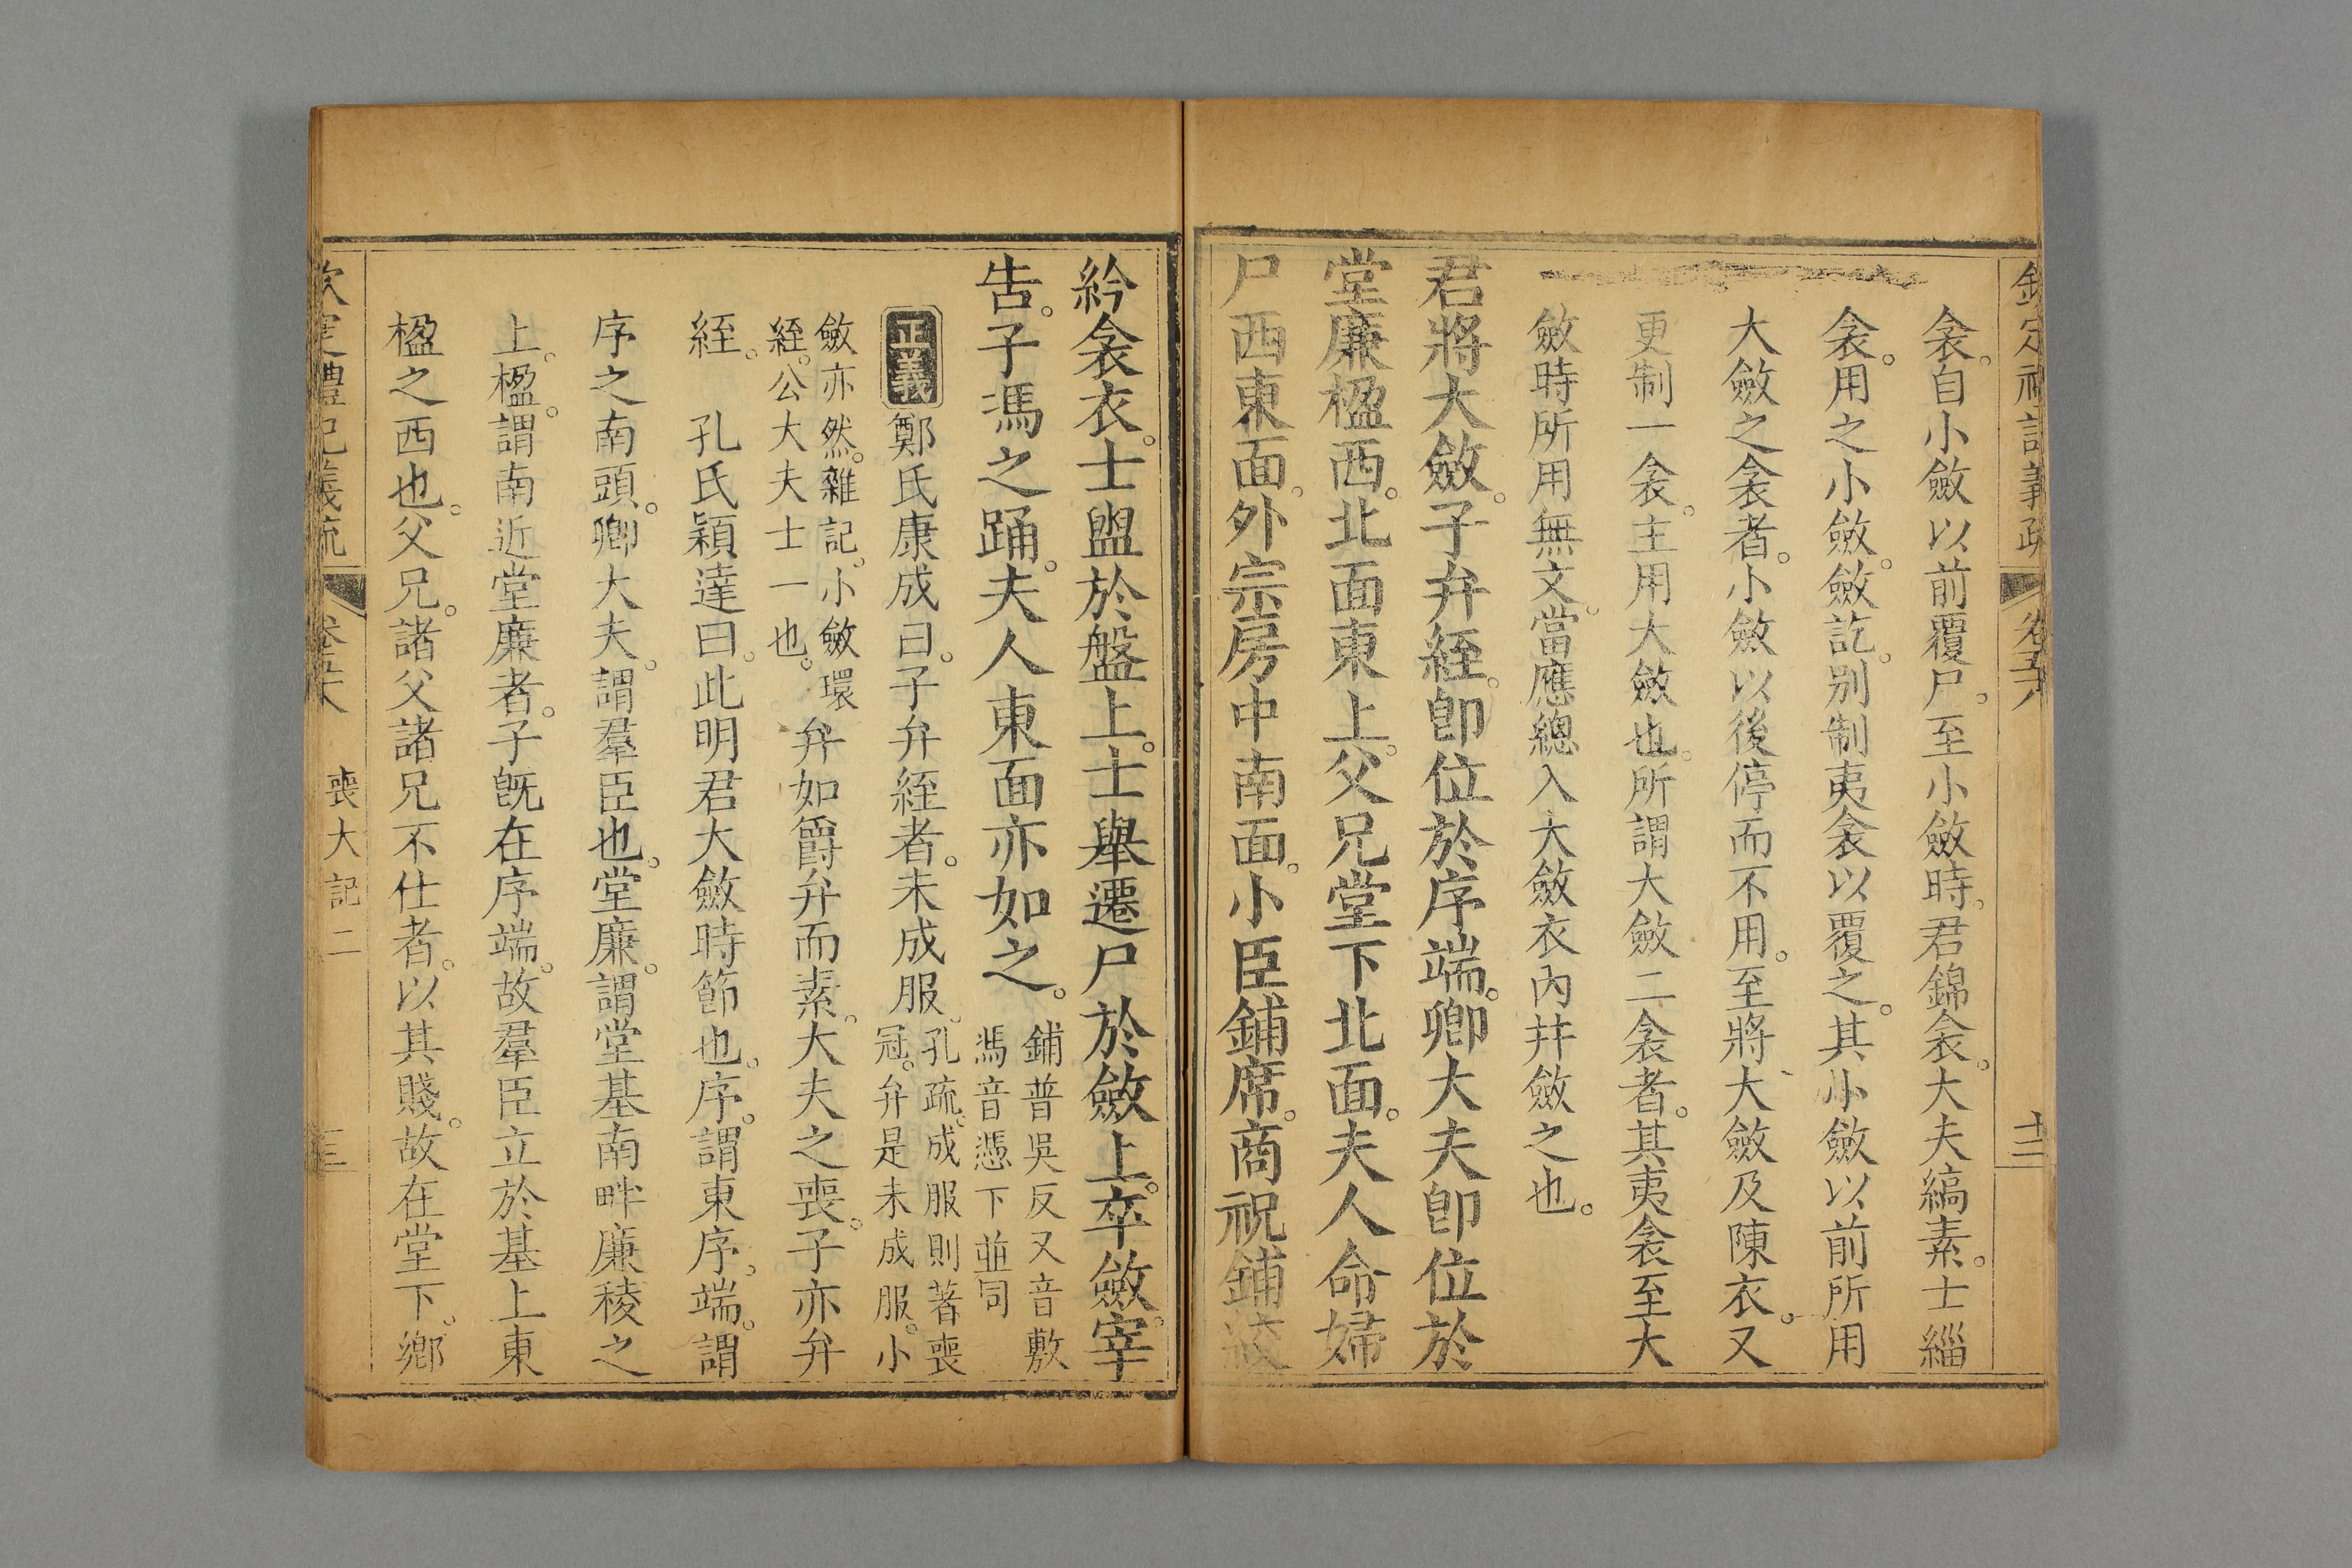 欽定禮記義疏 卷五十八 十二
衾。自小斂以前覆尸。至小斂時。君錦衾。大夫縞素。士緇
衾。用之小斂。斂訖。别制夷衾以覆之。其小斂以前所用
大斂之衾者。小斂以後停而不用。至將大斂及陳衣。又
更制一衾。主用大斂也。所謂大斂二衾者。其夷衾至大
斂時所用無文。當應總入大斂衣內并斂之也。
君將大斂。子弁絰。卽位於序端。卿大夫卽位於
堂廉楹西。北面東上。父兄堂下北面。夫人命婦
尸西東面。外宗房中南面。小臣鋪席。商祝鋪絞
紟衾衣。士盥於盤上。士舉遷尸於斂上。卒斂。宰
告。子馮之踊。夫人東面亦如之。
鋪普吳反又音敷
馮音憑下並同
正義 鄭氏康成曰。子弁絰者。未成服。
孔疏。成服則著喪
冠。弁是未成服。小
斂亦然。雜記。小斂環
絰。公大夫士一也。
弁如爵弁而素。大夫之喪。子亦弁
絰。 孔氏穎達曰。此明君大斂時節也。序。謂東序。端。謂
序之南頭。卿大夫。謂羣臣也。堂廉。謂堂基南畔廉稜之
上。楹。謂南近堂廉者。子旣在序端。故羣臣立於基上東
楹之西也。父兄。諸父諸兄不仕者。以其賤。故在堂下。鄉
欽定禮記義疏 卷五十八 喪大記二